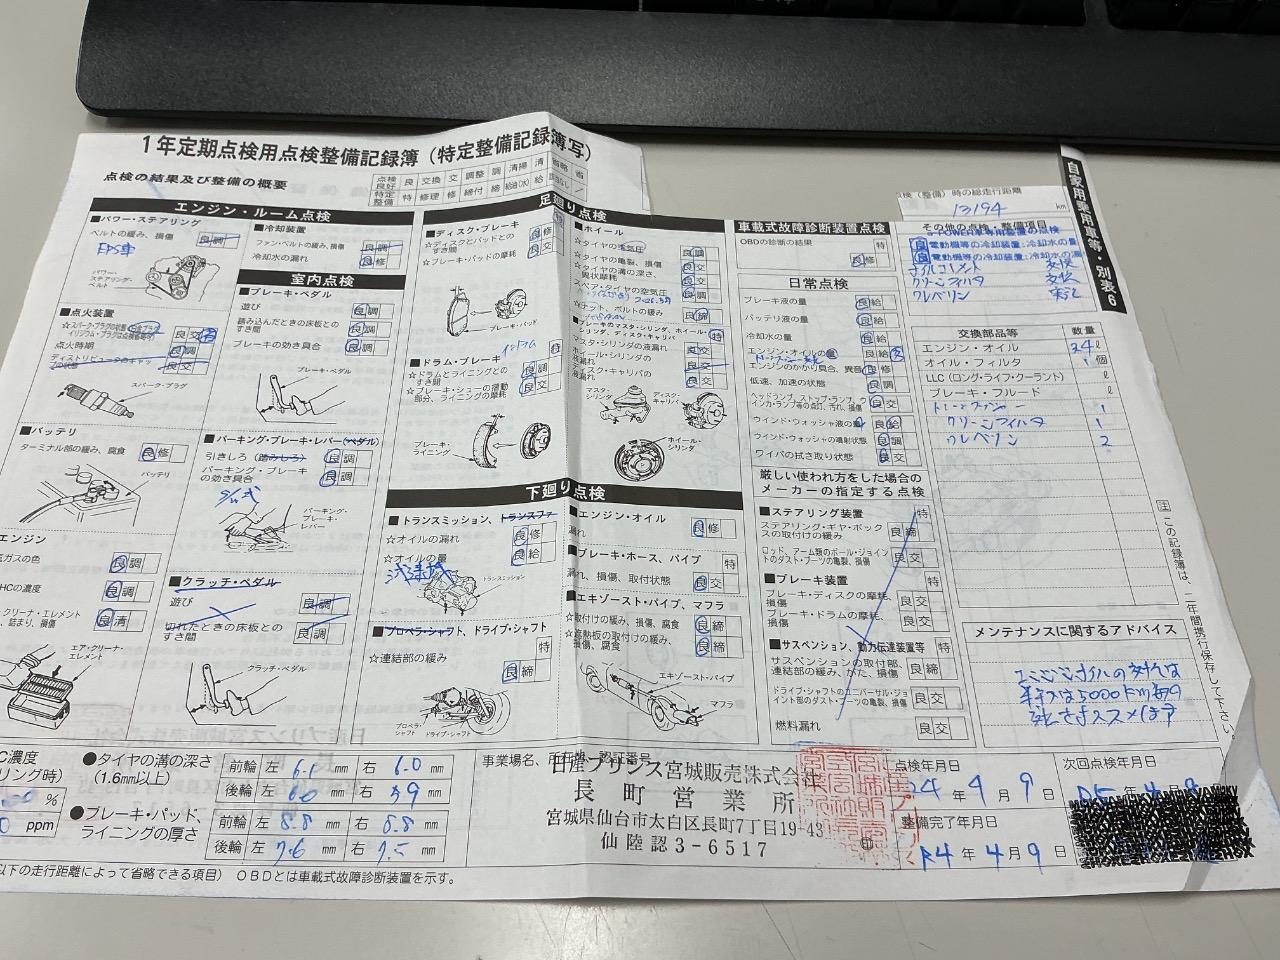 1年定期点検用点検整備記録簿(特定整備記録簿写)
点検の結果及び整備の概要
点検 良好 良 交換 交 調整 調 清掃 清 省略 省
特定整備 特 修理 修 締付 締 給油(水) 給 該当なし /
エンジン・ルーム点検
■パワー・ステアリング
ベルトの緩み、損傷 良 調
EPS車
パワー・ステアリング・ベルト
■点火装置
点火時期 良 調
スパーク・プラグ
■バッテリ
ターミナル部の緩み、腐食 良 修
バッテリ
エンジン
ガスの色 良 調
HCの濃度 良 調
クリーナ・エレメント
、詰まり、損傷 良 清
エア・クリーナ・エレメント
■冷却装置
ファン・ベルトの緩み、損傷 良 調
冷却水の漏れ 良 修
室内点検
■ブレーキ・ペダル
遊び 良 調
踏み込んだときの床板とのすき間 良 調
ブレーキの効き具合 良 調
ブレーキ・ペダル
■パーキング・ブレーキ・レバー(ペダル)
引きしろ(踏みしろ) 良 調
パーキング・ブレーキの効き具合 良 調
パーキング・ブレーキ・レバー
■クラッチ・ペダル
遊び 良 調
切れたときの床板とのすき間 良 調
クラッチ・ペダル
足廻り点検
■ディスク・ブレーキ 特
☆ディスクとパッドとのすき間 良 修
☆ブレーキ・パッドの摩耗 良 交
ブレーキ・パッド
■ドラム・ブレーキ 特
☆ドラムとライニングとのすき間 良 調
☆ブレーキ・シューの摺動部分、ライニングの摩耗 良 交
ブレーキ・ライニング
■ホイール
☆タイヤの空気圧 良 調
☆タイヤの亀裂、損傷
☆タイヤの溝の深さ、異状摩耗 良 交
スペア・タイヤの空気圧 良 調
■ブレーキのマスタ・シリンダ、ホイール・シリンダ、ディスク・キャリパ 特
マスタ・シリンダの液漏れ 良 交
ホイール・シリンダの液漏れ 良 交
ディスク・キャリパの液漏れ 良 交
マスタ・シリンダ
ディスク・キャリパ
ホイール・シリンダ
下廻り点検
■トランスミッション、トランスファ
☆オイルの漏れ 良 修
☆オイルの量 良 給
トランスミッション
■プロペラ・シャフト、ドライブ・シャフト 特
☆連結部の緩み 良 締
プロペラ・シャフト ドライブ・シャフト
■エンジン・オイル
漏れ 良 修
■ブレーキ・ホース、パイプ 特
漏れ、損傷、取付状態 良 交
■エキゾースト・パイプ、マフラ
☆取付けの緩み、損傷、腐食 良 締
☆遮熱板の取付けの緩み、損傷、腐食 良 締
エキゾースト・パイプ
マフラ
車載式故障診断装置点検
OBDの診断の結果 特 良 修
日常点検
ブレーキ液の量 良 給
バッテリ液の量 良 給
冷却水の量 良 給
エンジン・オイルの量 良 給 交
エンジンのかかり具合、異音 良 修
低速、加速の状態 良 調
ヘッドランプ、ストップ・ランプ、ウインカ・ランプ等の点灯、汚れ、損傷 良 交
ウインド・ウォッシャ液の量 良 給
ウインド・ウォッシャの噴射状態 良 調
ワイパの拭き取り状態 良 交
厳しい使われ方をした場合のメーカーの指定する点検
■ステアリング装置 特
ステアリング・ギヤ・ボックスの取付けの緩み 良 締
ロッド、アーム類のボール・ジョイントのダスト・ブーツの亀裂、損傷 良 交
■ブレーキ装置 特
ブレーキ・ディスクの摩耗、損傷 良 交
ブレーキ・ドラムの摩耗、損傷 良 交
■サスペンション、動力伝達装置等 特
サスペンションの取付部、連結部の緩み、がた、損傷 良 締
ドライブ・シャフトのユニバーサル・ジョイント部のダスト・ブーツの亀裂、損傷 良 交
燃料漏れ 良 交
点検(整備)時の総走行距離
13194 km
その他の点検・整備項目
e-POWER車専用装置の点検
良 電動機等の冷却装置:冷却水の量
良 電動機等の冷却装置:冷却水の漏
オイルエレメント 交換
クリーンフィルタ 交換
クレベリン 実施
交換部品等 数量
エンジン・オイル 3.4 ℓ
オイル・フィルタ 1 個
LLC(ロング・ライフ・クーラント) ℓ
ブレーキ・フルード ℓ
クリーンフィルタ 1
クレベリン 2
メンテナンスに関するアドバイス
エンジンオイルの交換は
半年又は5000km毎の
交換をおススメします
自家用乗用車等・別表6
注 この記録簿は、二年間携行保存して下さい。
C濃度
リング時)
%
0 ppm
●タイヤの溝の深さ(1.6mm以上)
前輪 左 6.1 mm 右 6.0 mm
後輪 左 6.0 mm 右 5.9 mm
●ブレーキ・パッド、ライニングの厚さ
前輪 左 8.8 mm 右 8.8 mm
後輪 左 7.6 mm 右 7.5 mm
事業場名、所在地、認証番号
日産プリンス宮城販売株式会社
長町営業所
宮城県仙台市太白区長町7丁目19-43
仙陸認3-6517
㊞
点検年月日
R4年 4月 9日
整備完了年月日
R4年 4月 9日
次回点検年月日
以下の走行距離によって省略できる項目) OBDとは車載式故障診断装置を示す。